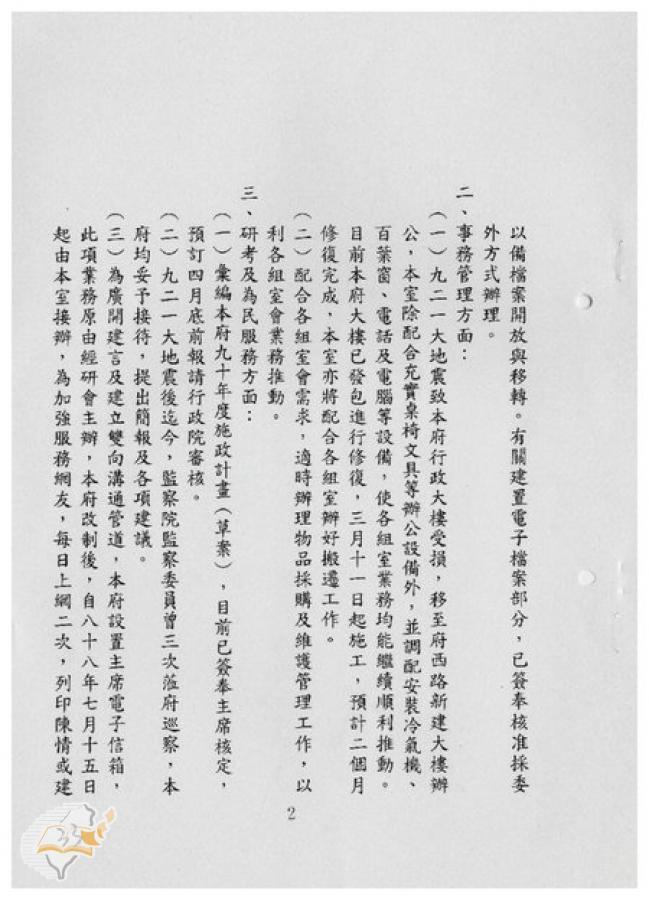 以備檔案開放與移轉。有關建置電子檔案部分，已簽奉核准採委
外方式辦理。
二、事務管理方面：
（一）九二一大地震致本府行政大樓受損，移至府西路新建大樓辦
公，本室除配合充實桌椅文具等辦公設備外，並調配安裝冷氣機、
百葉窗、電話及電腦等設備，使各組室業務均能繼續順利推動。
目前本府大樓已發包進行修復，三月十一日起施工，預計二個月
修復完成，本室亦將配合各組室辦好搬遷工作。
（二）配合各組室會需求，適時辦理物品採購及維護管理工作，以
利各組室會業務推動。
三、研考及為民服務方面：
（一）彙編本府九十年度施政計畫（草案），目前已簽奉主席核定，
預訂四月底前報請行政院審核。
（二）九二一大地震後迄今，監察院監察委員曾三次蒞府巡察，本
府均妥予接待，提出簡報及各項建議。
（三）為廣開建言及建立雙向溝通管道，本府設置主席電子信箱，
此項業務原由經研會主辦，本府改制後，自八十八年七月十五日
起由本室接辦，為加強服務網友，每日上網二次，列印陳情或建
2